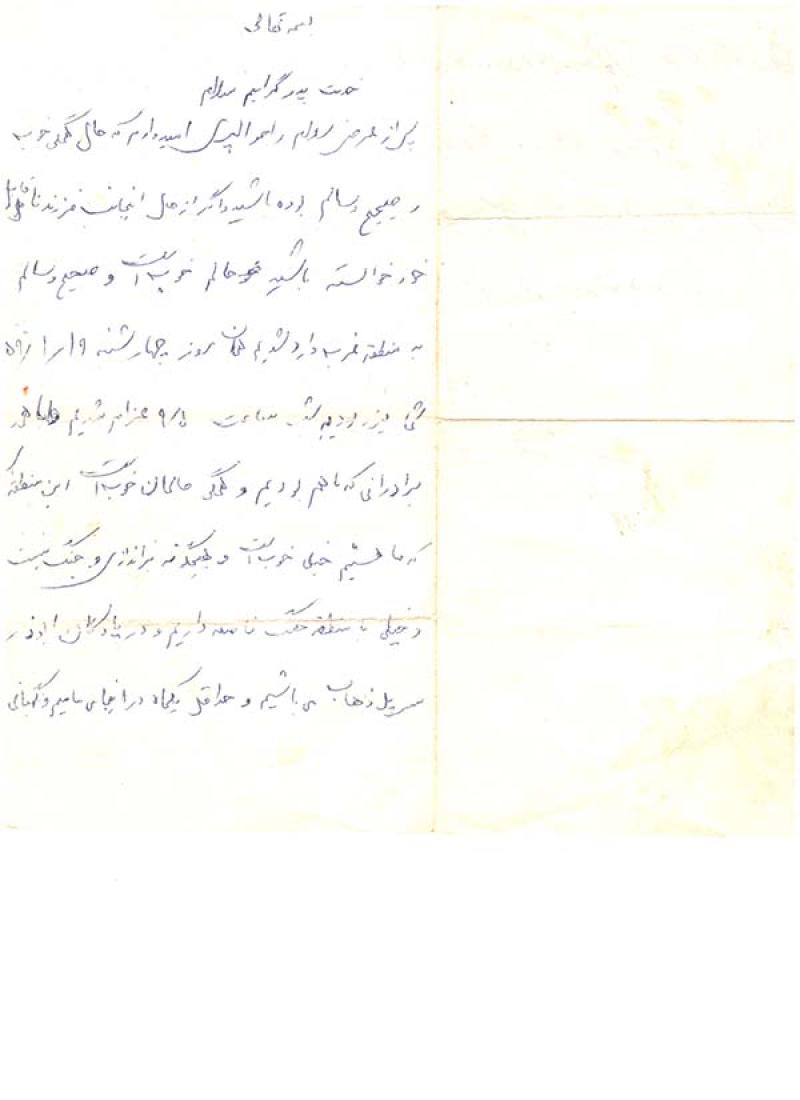 بسمه تعالی
خدمت پدر گرامیم سلام
پس از عرض سلام و احوالپرسی امیدوارم که حال همگی خوب
و صحیح و سالم بوده باشید و اگر از حال اینجانب فرزند
خود خواسته باشید حالم خوب است و صحیح و سالم
به منطقه غرب وارد شدیم همان روز چهارشنبه
شب ساعت ۹/۵ اعزام شدیم
برادرانی که باهم بودیم و همگی حالمان خوب است این منطقه
که ما هستیم خیلی خوب است و هیچگونه تیراندازی و جنگ نیست
و خیلی با منطقه جنگ فاصله داریم و در پادگان ابوذر
سرپل ذهاب می باشیم و حداقل یکماه در اینجا می مانیم و